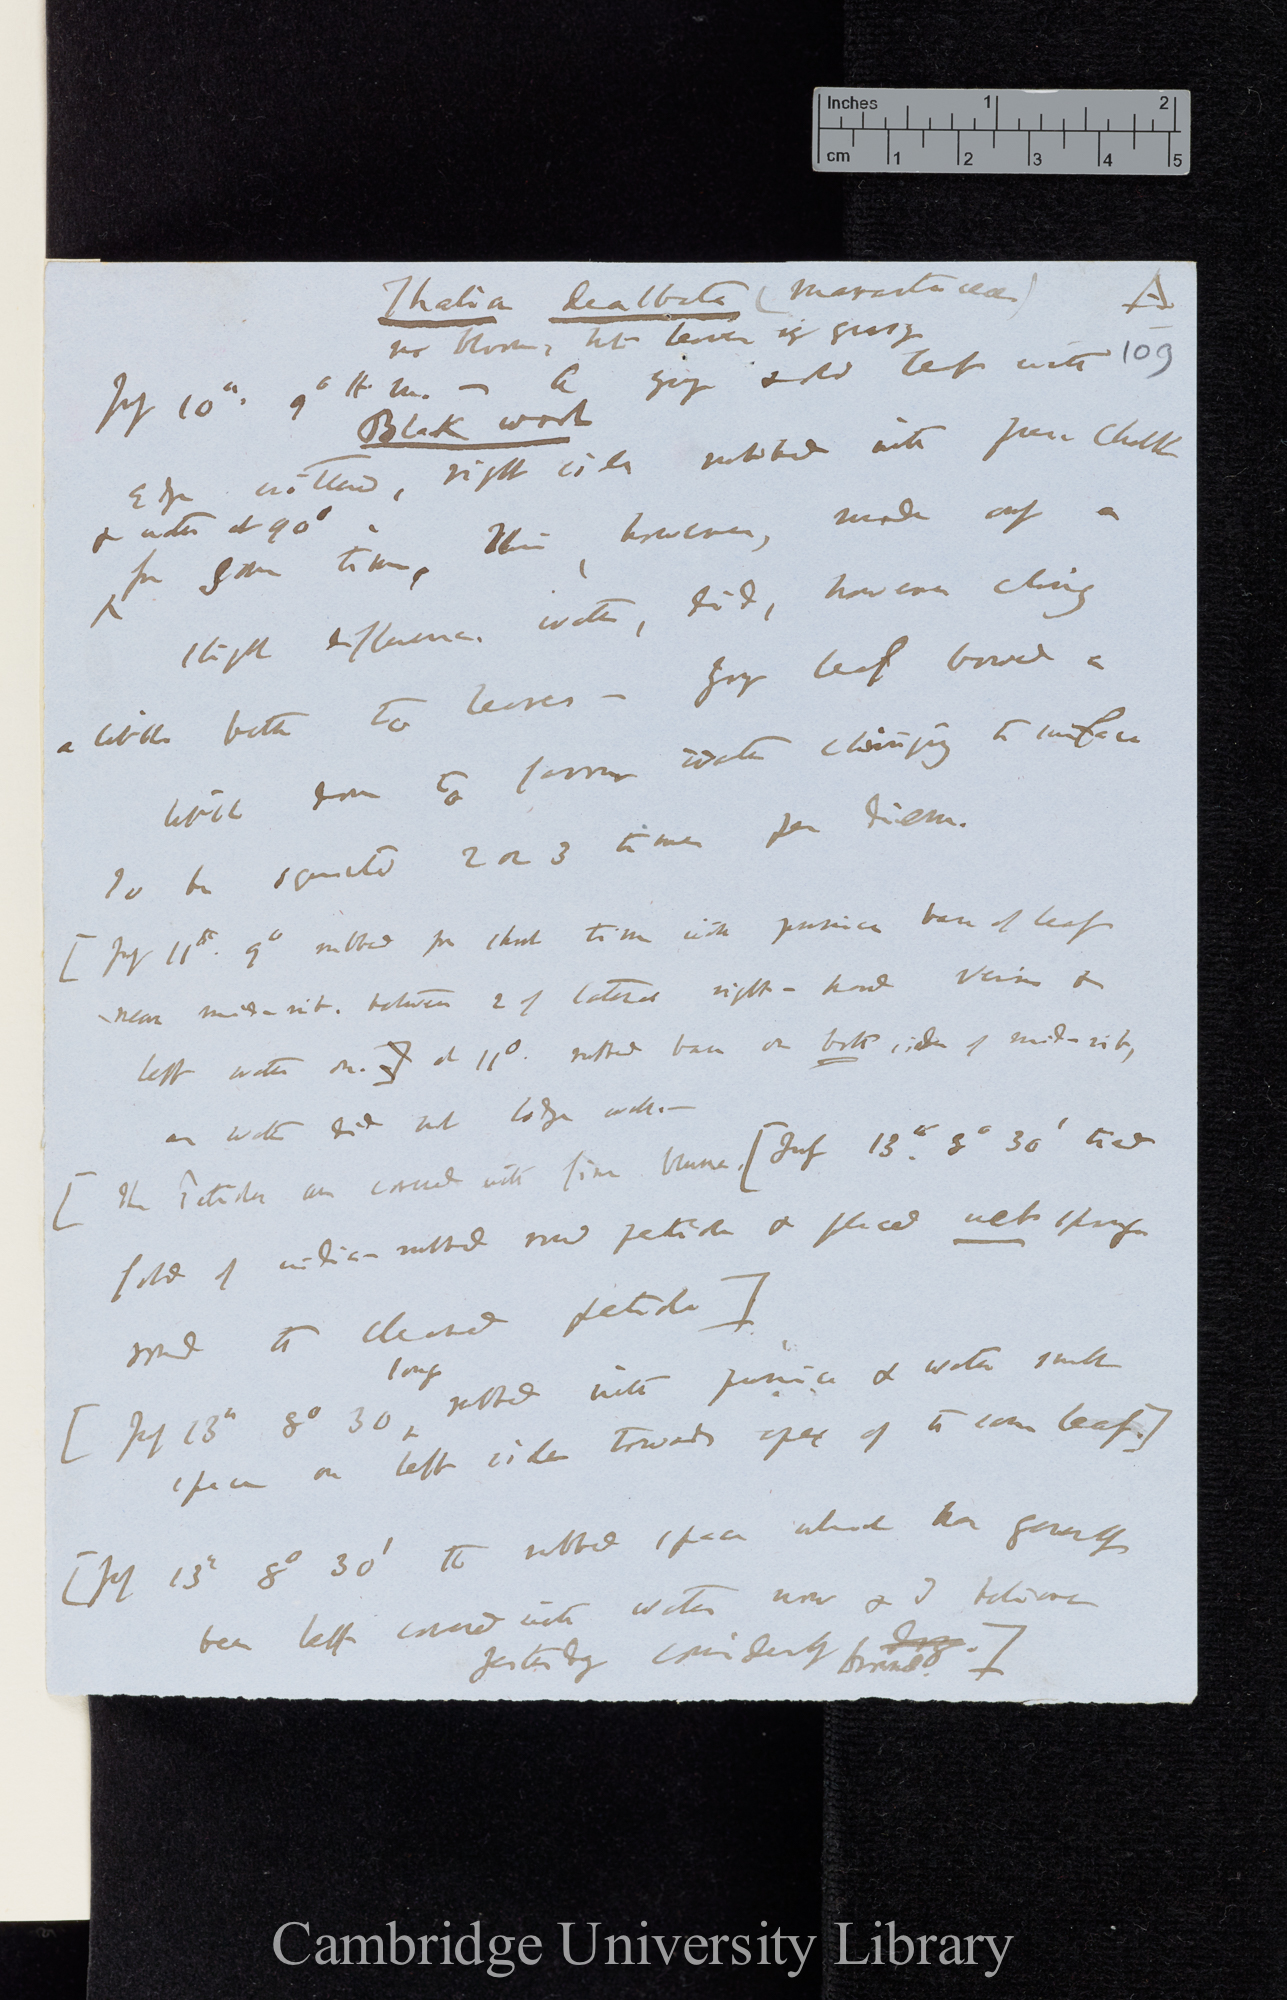 Inches 1 2
cm 1 2 3 4 5
Thalia dealbata (Marantaceae)
A
no bloom, but leaves
109
July 10th. 9° A.m. — A & old leaf with
Black wool
Edge, right side rubbed with pure chalk
& water at 90°
for some time, This, however, made only a
slight difference. water, did, however cling
a little better to leaves — leaf bowed a
little down to favour water clinging to surface
To be syringed 2 or 3 times per diem.
[July 11th. 9° rubbed for short time with pumice base of leaf
near mid-rib. between 2 of lateral right-hand veins &
left water on.] at 11°. rubbed base on both sides of mid-rib,
as water did not lodge well.—
[The Petioles are covered with fine bloom. [July 13th. 8° 30' tied
fold of india-rubber round petiole & placed wet sponge
round to cleaned petiole]
long
[July 13th 8° 30 rubbed with pumice & water small
space on left side towards apex of to same leaf.]
[July 13th 8° 30' the rubbed space which has generally
been left covered with water now & I believe
yesterday considerably dry.]
browned.
Cambridge University Library